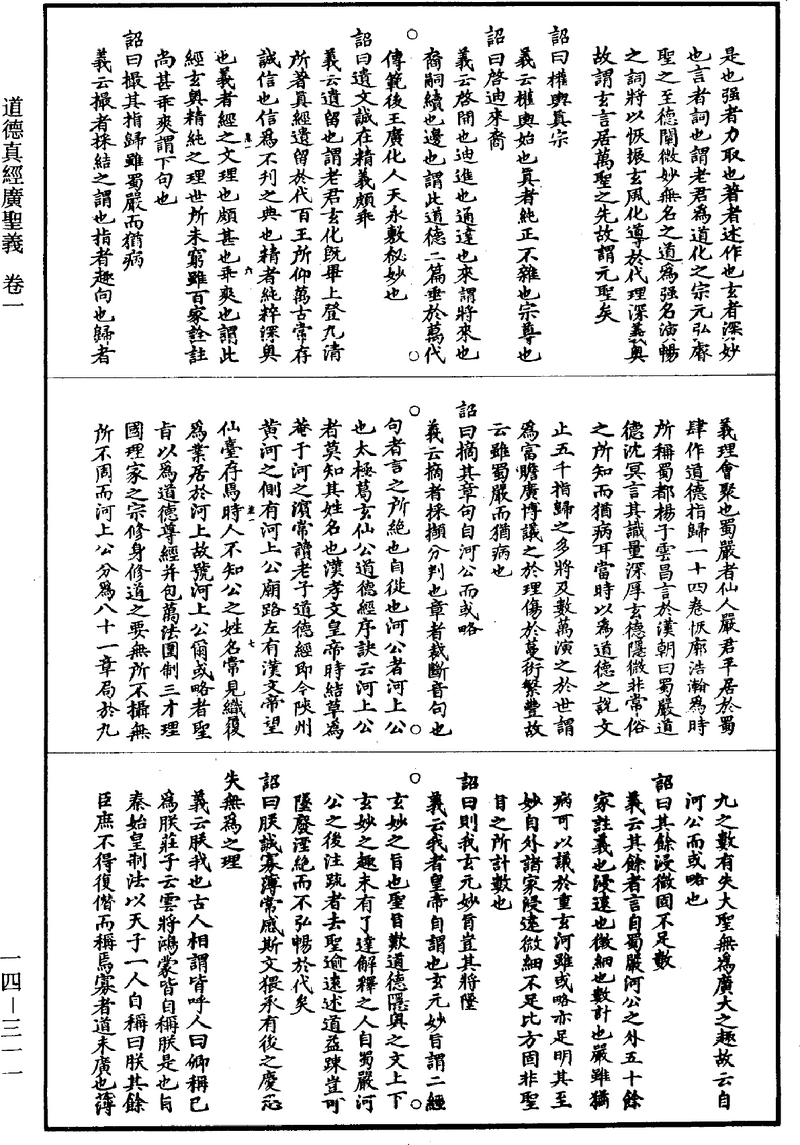 道德真經廣聖義 卷一
是也强者力取也著者述作也玄者深妙
也言者詞也謂老君爲道化之宗元弘睿
聖之至德闡微妙無名之道爲强名演暢
之詞將以恢振玄風化導於代理深義奥
故謂玄言居萬聖之先故謂元聖矣
詔曰權輿真宗
義云權輿始也眞者純正不雜也宗尊也
詔曰啓迪來裔
義云啓開也迪進也通達也來謂將來也
裔嗣續也邊也謂此道德二篇垂於萬代
傳範後王廣化人天永敷秘妙也
詔曰遺文誠在精義頗乖
義云遺留也謂老君玄化既畢上登九清
所著真經遺留於代百王所仰萬古常存
誠信也信爲不刊之典也精者純粹深奥
也義者經之文理也頗甚也乖爽也謂此
經玄奥精純之理世所未窮雖百家詮註
尚甚乖爽謂下句也
詔曰撮其指歸雖蜀嚴而猶病
義云撮者採結之謂也指者趣向也歸者
義理會聚也蜀嚴者仙人嚴君平居於蜀
肆作道德指歸一十四卷恢廓浩瀚爲時
所稱蜀都楊子雲昌言於漢朝曰蜀嚴道
德沈冥言其識量深厚玄德隱微非常俗
之所知而猶病耳當時以爲道德之說文
止五千指歸之多將及數萬演之於世謂
爲富贍廣博議之於理傷於蔓衍繁豐故
云雖蜀嚴而猶病也
詔曰摘其章句自河公而或略
義云摘者採擷分判也章者裁斷音句也
句者言之所絶也自從也河公者河上公
也太極葛玄仙公道德經序訣云河上公
者莫知其姓名也漢孝文皇帝時結草爲
菴于河之濱常讀老子道德經即今陝州
黄河之側有河上公廟路左有漢文帝望
仙臺存焉時人不知公之姓名常見織履
爲業居於河上故號河上公爾或略者聖
旨以爲道德尊經并包萬法圍制三才理
國理家之宗修身修道之要無所不攝無
所不周而河上公分爲八十一章局於九
九之數有失大聖無爲廣大之趣故云自
河公而或略也
詔曰其餘浸微固不足數
義云其餘者言自蜀嚴河公之外五十餘
家註義也浸遠也微細也數計也嚴雖猶
病可以議於重玄河雖或略亦足明其至
妙自外諸家浸遠微細不足比方固非聖
目之所計數也
詔曰則我玄元妙旨豈其將墜
義云我者皇帝自謂也玄元妙旨謂二經
玄妙之旨也聖旨歎道德隱奥之文上下
玄妙之趣未有了達解釋之人自蜀嚴河
公之後注疏者去聖逾遠述道益踈豈可
墜廢湮絶而不弘暢於代矣
詔曰朕誠寡薄常感斯文猥承有後之慶恐
失無爲之理
義云朕我也古人相謂皆呼人曰卿稱己
爲朕莊子云雲將鴻蒙皆自稱朕是也自
秦始皇制法以天子一人自稱曰朕其餘
臣庶不得復僭而稱焉寡者道未廣也薄
一四－三一一